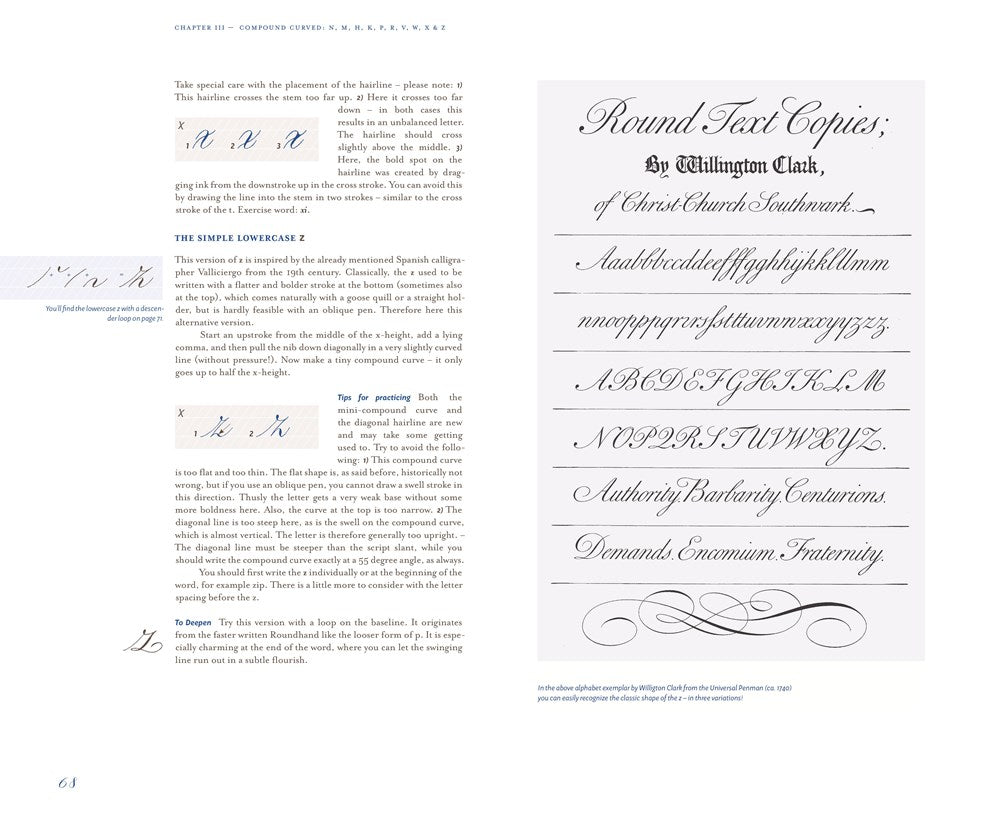 CHAPTER III — COMPOUND CURVED: N, M, H, K, P, R, V, W, X & Z
Take special care with the placement of the hairline – please note: 1)
This hairline crosses the stem too far up. 2) Here it crosses too far
down – in both cases this
results in an unbalanced letter.
The hairline should cross
slightly above the middle. 3)
Here, the bold spot on the
hairline was created by drag-
ging ink from the downstroke up in the cross stroke. You can avoid this
by drawing the line into the stem in two strokes – similar to the cross
stroke of the t. Exercise word: xi.
X
1 x 2 x 3 x
THE SIMPLE LOWERCASE Z
This version of z is inspired by the already mentioned Spanish calligra-
pher Valliciergo from the 19th century. Classically, the z used to be
written with a flatter and bolder stroke at the bottom (sometimes also
at the top), which comes naturally with a goose quill or a straight hol-
der, but is hardly feasible with an oblique pen. Therefore here this
alternative version.
Start an upstroke from the middle of the x-height, add a lying
comma, and then pull the nib down diagonally in a very slightly curved
line (without pressure!). Now make a tiny compound curve – it only
goes up to half the x-height.
You'll find the lowercase z with a descen-
der loop on page 71.
X
1 z 2 z
Tips for practicing Both the
mini-compound curve and
the diagonal hairline are new
and may take some getting
used to. Try to avoid the follo-
wing: 1) This compound curve
is too flat and too thin. The flat shape is, as said before, historically not
wrong, but if you use an oblique pen, you cannot draw a swell stroke in
this direction. Thusly the letter gets a very weak base without some
more boldness here. Also, the curve at the top is too narrow. 2) The
diagonal line is too steep here, as is the swell on the compound curve,
which is almost vertical. The letter is therefore generally too upright. –
The diagonal line must be steeper than the script slant, while you
should write the compound curve exactly at a 55 degree angle, as always.
You should first write the z individually or at the beginning of the
word, for example zip. There is a little more to consider with the letter
spacing before the z.
To Deepen Try this version with a loop on the baseline. It originates
from the faster written Roundhand like the looser form of p. It is espe-
cially charming at the end of the word, where you can let the swinging
line run out in a subtle flourish.
z
68
Round Text Copies;
By Willington Clark,
of Christ-Church Southwark.
Aaabbbccddeefffgghhijkklllmm
nnoopppqrrrsſsttttuvwnwxxyyzzz.
ABCDEFGHIKLM
NOPQRSTUVWXYZ.
Authority. Barbarity. Centurions.
Demands. Encomium. Fraternity.
In the above alphabet exemplar by Willigton Clark from the Universal Penman (ca. 1740)
you can easily recognize the classic shape of the z – in three variations!